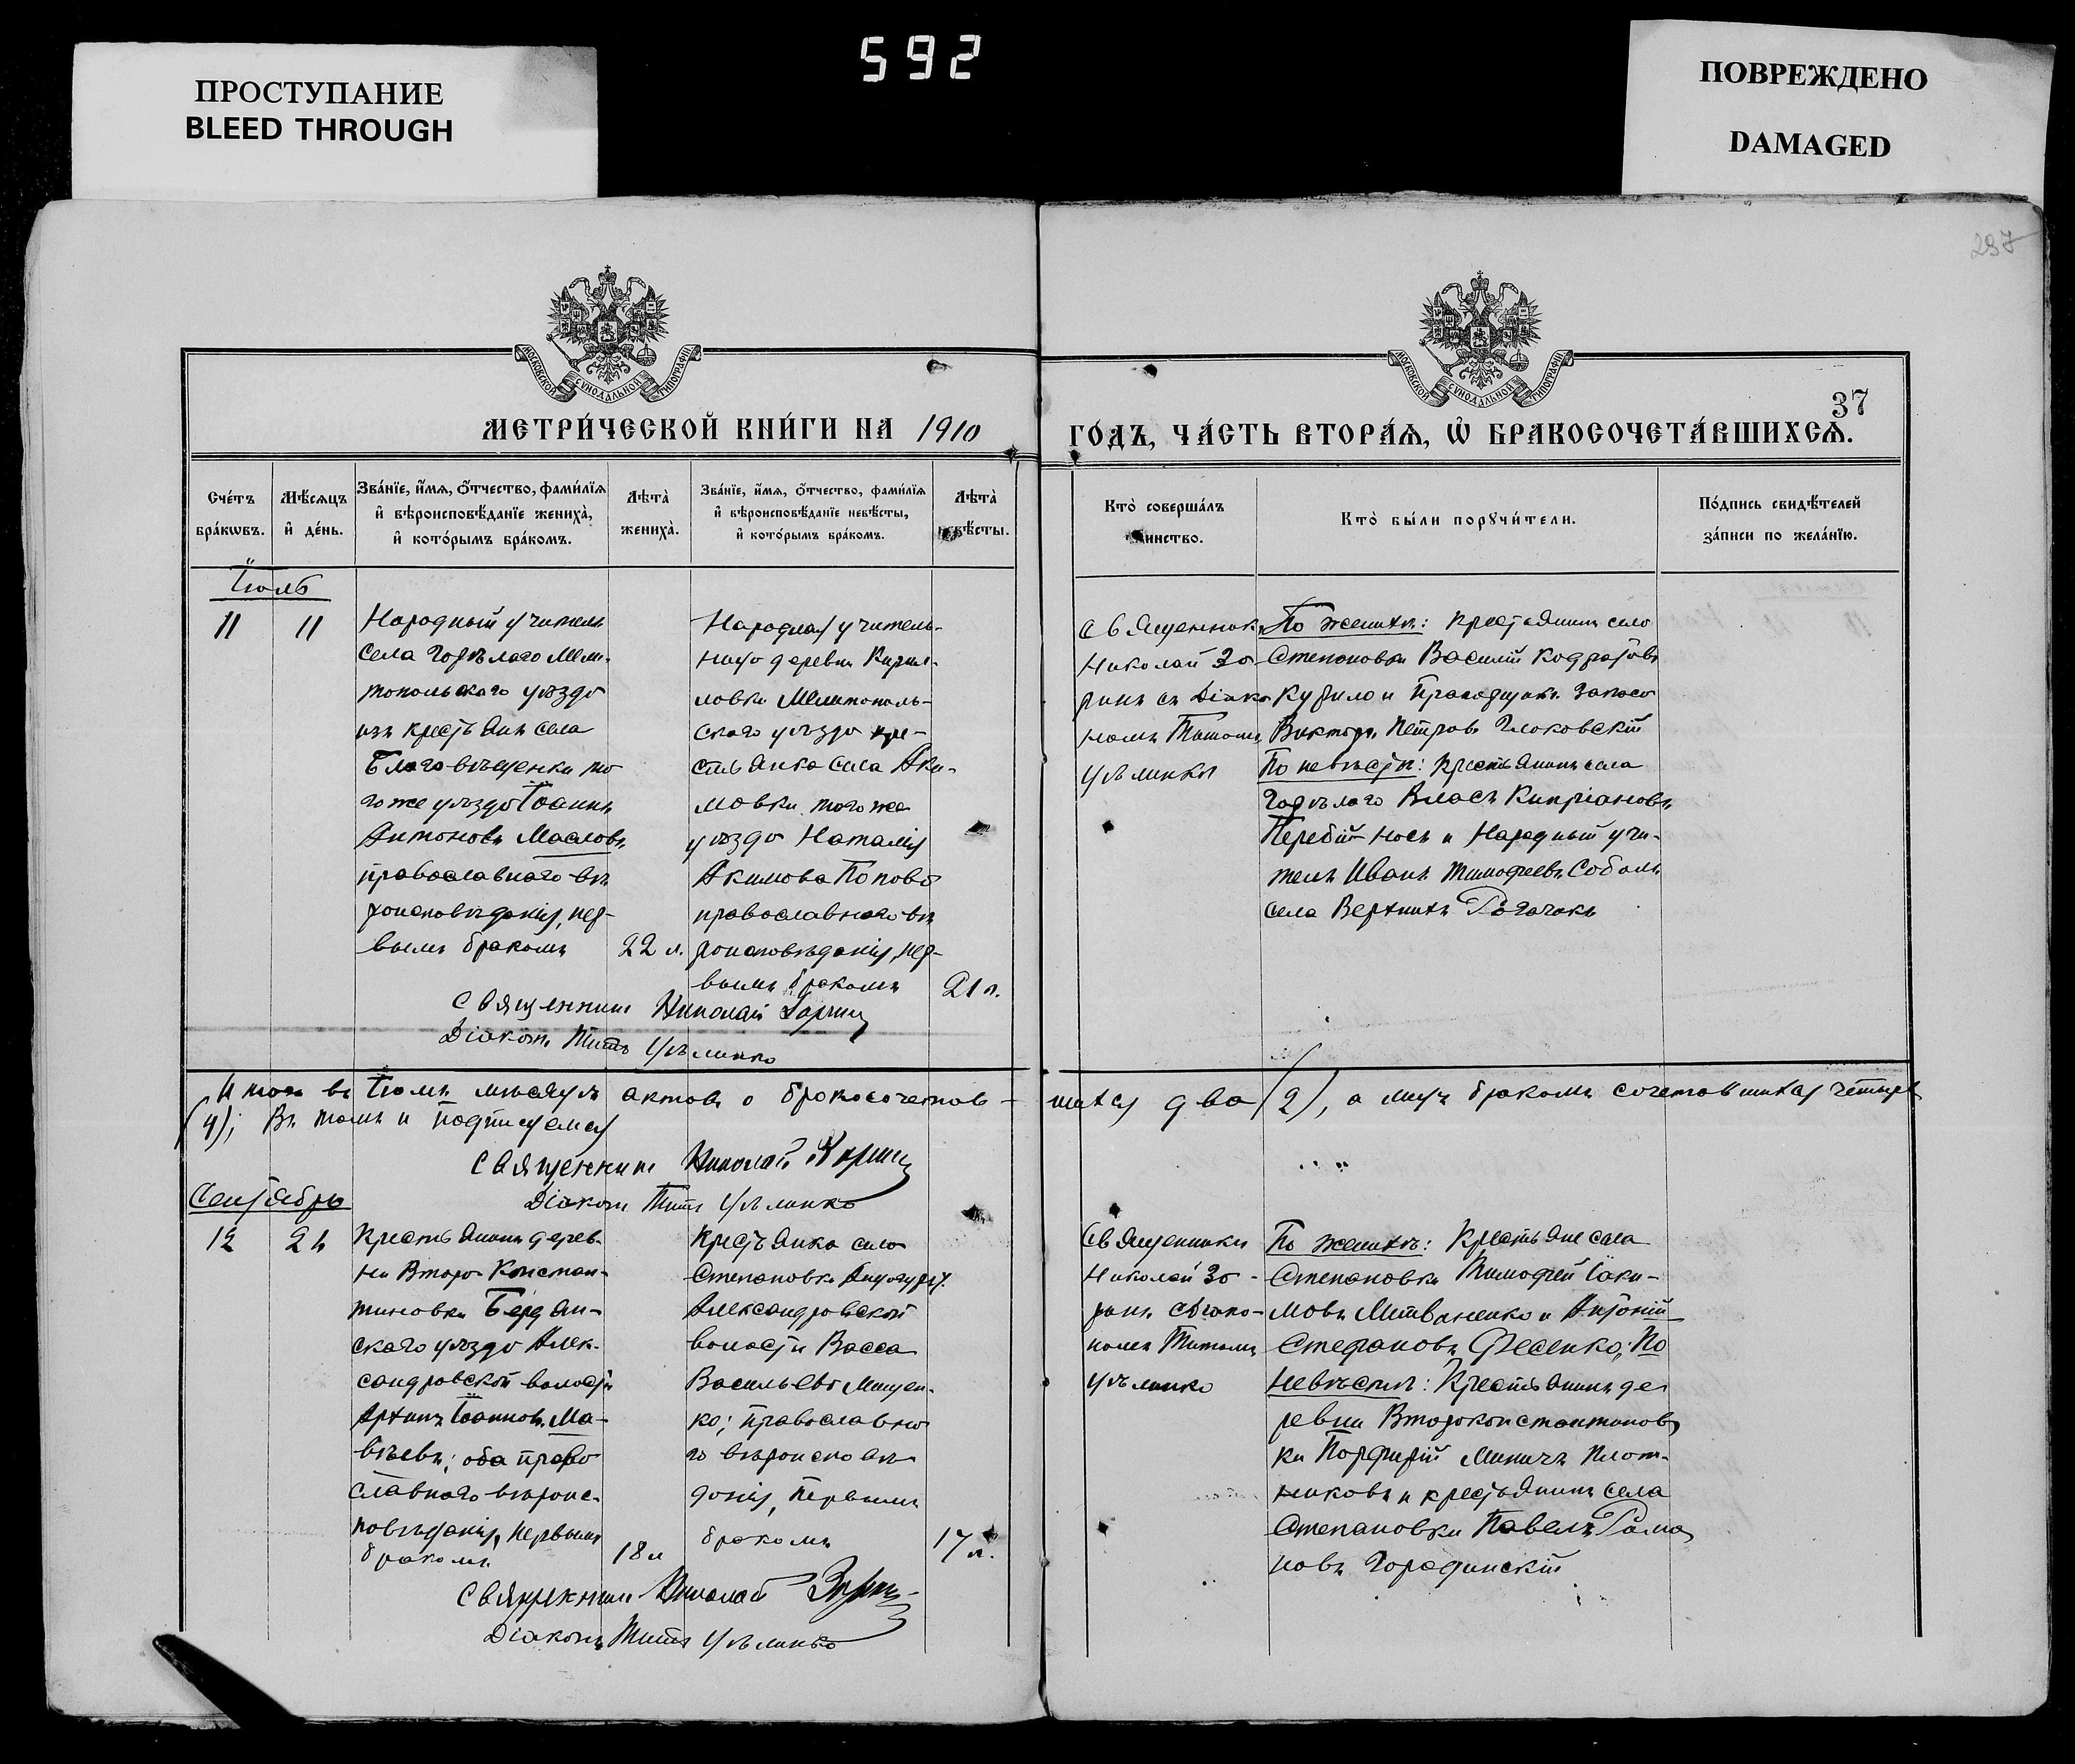 592
ПРОСТУПАНИЕ
BLEED THROUGH
ПОВРЕЖДЕНО
DAMAGED
297
37
МОСКОВСКОЙ СУНОДАЛЬНОЙ ТИПОГРАФІИ
МОСКОВСКОЙ СУНОДАЛЬНОЙ ТИПОГРАФІИ
МЕТРИ́ЧЕСКОЙ КНИ́ГИ НА 1910
ГО́ДЪ, ЧА́СТЬ ВТОРА́Ѧ, Ѽ БРАКОСОЧЕТА́ВШИХСѦ.
Сче́тъ бра́кѡвъ.
Мѣ́сѧцъ и҆ де́нь.
Зва́нїе, и҆́мѧ, ѻ҆́тчество, фами́лїѧ и҆ вѣроисповѣ́данїе жениха̀, и҆ кото́рымъ бра́комъ.
Лѣта̀ жениха̀.
Зва́нїе, и҆́мѧ, ѻ҆́тчество, фами́лїѧ и҆ вѣроисповѣ́данїе невѣ́сты, и҆ кото́рымъ бра́комъ.
Лѣта̀ невѣ́сты.
Кто̀ соверша́лъ таинство.
Кто̀ бы́ли порꙋчи́тели.
По́дпись свидѣ́телей за́писи по жела́нїю.
Іюль
11
11
Народный учитель
села Горѣлаго Мели-
топольскаго уѣзда
изъ крестьянъ села
Благовѣщенки то
гоже уѣзда Іоаннъ
Антоновъ Масловъ,
православнаго вѣ
роисповѣданія, пер-
вымъ бракомъ
22 л.
Народная учитель-
ница деревни Кирил-
ловки Мелитополь-
скаго уѣзда кре-
стьянка села Аки-
мовки того же
уѣзда Наталія
Акимова Попова
православнаго вѣ
роисповѣданія, пер-
вымъ бракомъ
21 л.
Священникъ
Николай Зо-
ринъ съ Діако
номъ Титомъ
Цѣлинко
По женихѣ: крестьянинъ села
Степановки Василій Кодратовъ
Курило и Прапорщикъ запаса
Викторъ Петровъ Глоковскій
По невѣстѣ: крестьянинъ села
Горѣлаго Власъ Кипріановъ
Перебій-носъ и Народный учи-
тель Иванъ Тимофеевъ Соболь
села Верхнихъ Рогачикъ
Священникъ Николай Зоринъ
Діаконъ Титъ Цѣлинко
Итого въ Іюлѣ мѣсяцѣ актовъ о бракосочетав-
шихся два (2), а лицъ бракомъ сочетавшихся четыре
(4); Въ томъ и подписуемся
Священникъ Николай Зоринъ
Діаконъ Титъ Цѣлинко
Сентябрь
12
Крестьянинъ дерев-
ни Второ-Констан-
тиновки Бердян-
скаго уѣзда Алек-
сандровской волости
Архипъ Іоанновъ Ма-
вѣевъ; оба право
славнаго вѣроис-
повѣданія, первымъ
бракомъ
18 л
Крестьянка села
Степановки
Александровской
волости Васса
Васильева Мищен-
ко; православна
го вѣроисповѣ
данія, первымъ
бракомъ
17 л.
Священникъ
Николай Зо-
ринъ съ діако-
номъ Титомъ
Цѣлинко
По женихѣ: Крестьяне села
Степановки Тимофей Іаки-
мовъ Литвиненко и Антоній
Стефановъ Фесенко; По
Невѣстѣ: Крестьянинъ де
ревни Второконстантинов
ки Порфирій Миничъ Плот-
никовъ и крестьянинъ села
Степановки Павелъ Рома
новъ Городинскій
Священникъ Николай Зоринъ
Діаконъ Титъ Цѣлинко